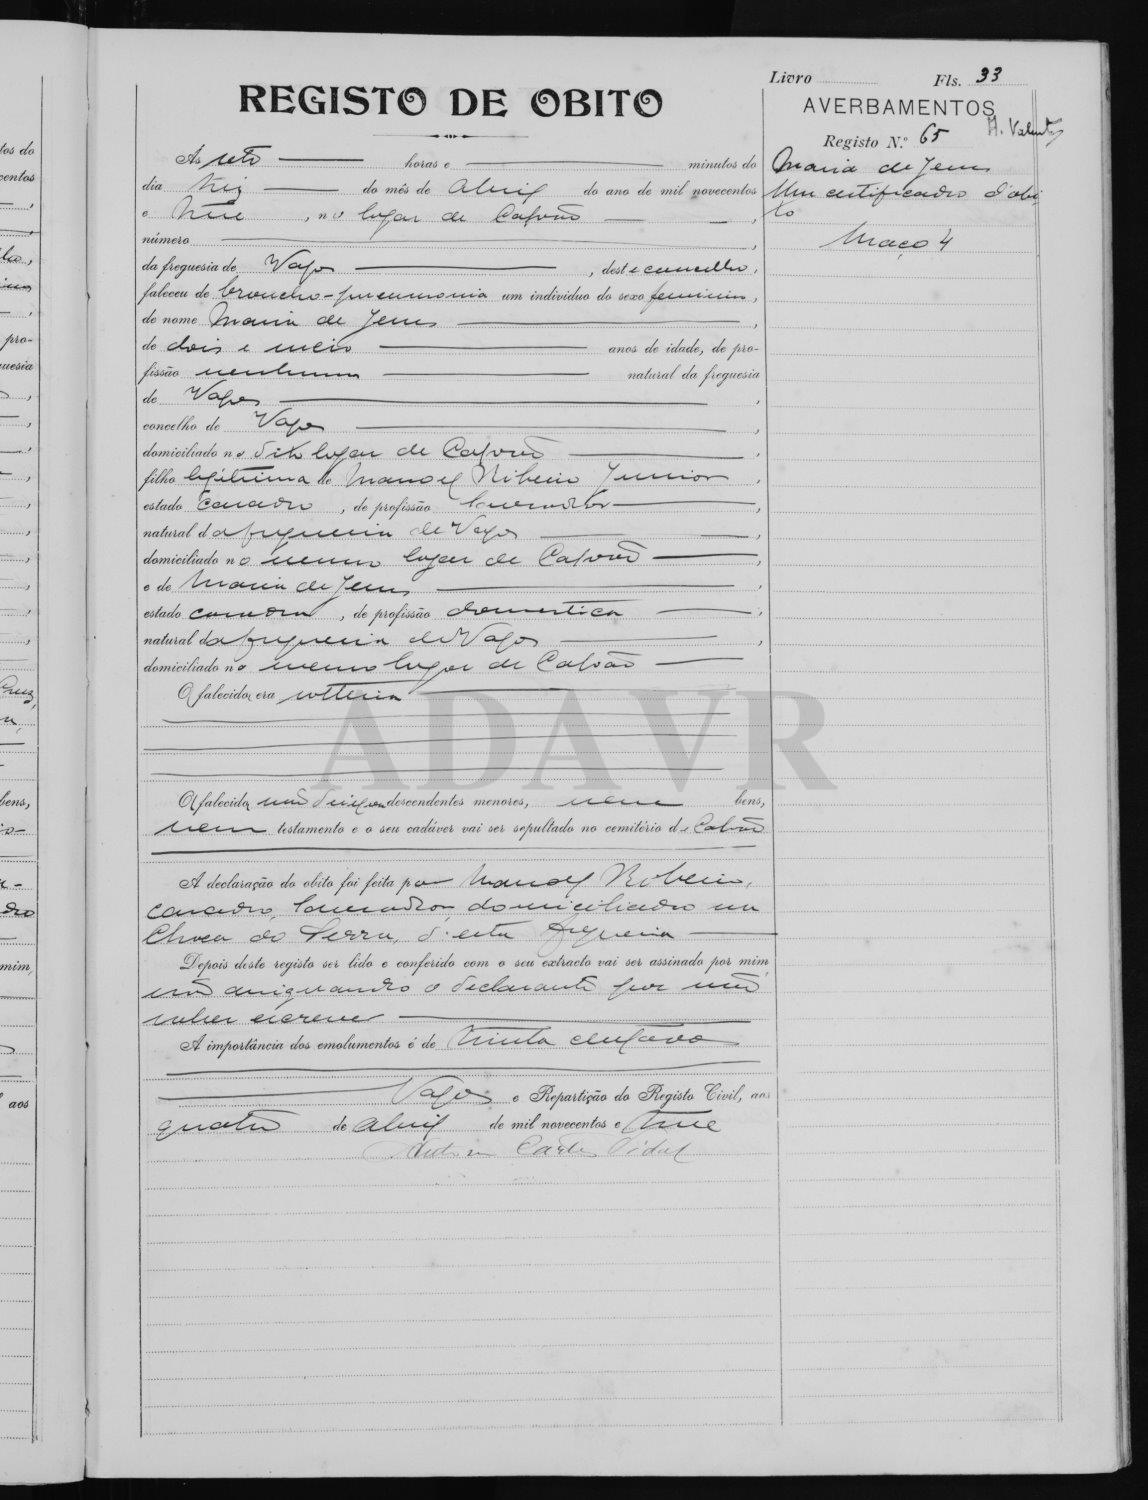 Livro Fls. 33
REGISTO DE OBITO
AVERBAMENTOS
Registo N.º 65 H. Valente
Maria de Jesus
Um certificado d'obi
to
Maço 4
Ás sete horas e minutos do
dia trez do mês de Abril do ano de mil novecentos
e treze, no logar de Calvão,
número
da freguesia de Vagos, deste concelho,
faleceu de broncho-pneumonia um individuo do sexo feminino,
de nome Maria de Jesus,
de dois e meio anos de idade, de pro-
fissão nenhuma natural da freguesia
de Vagos,
concelho de Vagos,
domiciliado no dito logar de Calvão,
filha legitima de Manoel Ribeiro Junior,
estado casado, de profissão lavrador,
natural da freguesia de Vagos,
domiciliado no mesmo logar de Calvão,
e de Maria de Jesus,
estado casada, de profissão domestica,
natural da freguesia de Vagos,
domiciliado no mesmo logar de Calvão
O falecido, era solteira
ADAVR
O falecido não deixou descendentes menores, nem bens,
nem testamento e o seu cadáver vai ser sepultado no cemitério de Calvão
A declaração do obito foi feita por Manoel Ribeiro,
casado, lavrador, domiciliado na
Choca do Serra, d'esta freguesia
Depois deste registo ser lido e conferido com o seu extracto vai ser assinado por mim
não assignando o declarante por não
saber escrever
A importância dos emolumentos é de trinta centavos
Vagos e Repartição do Registo Civil, aos
quatro de Abril de mil novecentos e treze